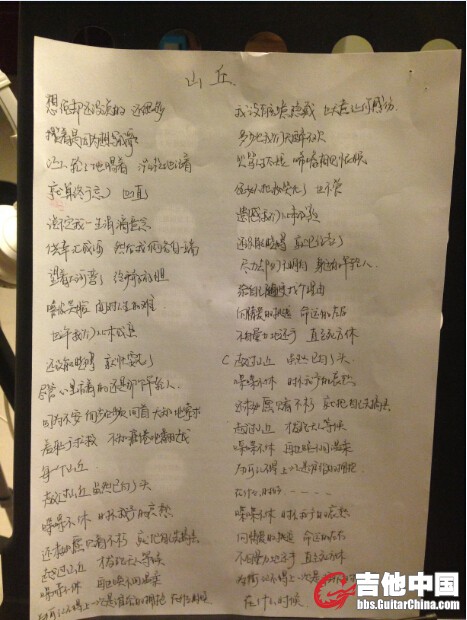 山丘
想说却还没说的 还很多
攒着是因为想写成歌
让人轻轻地唱着 淡淡地记着
就算终于忘了 也值
说不定我一生涓滴意念
侥幸汇成河 然后我俩各自一端
望着大河弯弯 终于敢放胆
嘻皮笑脸 面对人生的难
也许我们从未成熟
还没能晓得 就快要老了
尽管心里活着的还是那个年轻人
因为不安 而频频回首 无知地索求
羞耻于求救 不知疲倦地翻越
每一个山丘
越过山丘 虽然已白了头
喋喋不休 时不我予的哀愁
还未如愿见着不朽 就把自己先搞丢
越过山丘 才发现无人等候
喋喋不休 再也唤不回温柔
为何记不得上一次是谁给的拥抱 在什么时候
我没有刻意隐藏 也无意让你感伤
多少次我们无醉不欢
咒骂人生太短 唏嘘相见恨晚
让女人把妆哭花了 也不管
遗憾我们从未成熟
还没能晓得 就已经老了
尽力却仍不明白 身边的年轻人
给自己随便找个理由
向情爱的挑逗 命运的左右
不自量力地还手 直至死方休
C 越过山丘 虽然已白了头
喋喋不休 时不我予的哀愁
还未如愿见着不朽 就把自己先搞丢
越过山丘 才发现无人等候
喋喋不休 再也唤不回温柔
为何记不得上一次是谁给的拥抱
在什么时候
喋喋不休 时不我予的哀愁
向情爱的挑逗 命运的左右
不自量力地还手 直至死方休
为何记不得上一次是谁给的
在什么时候
吉他中国
bbs.GuitarChina.com